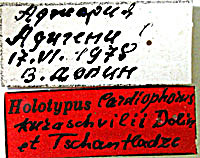 Аджария
Адигени
17.VI.1978
В. Долин
Holotypus Cardiophorus
kuraschvilii Dolin
et Tschantladze